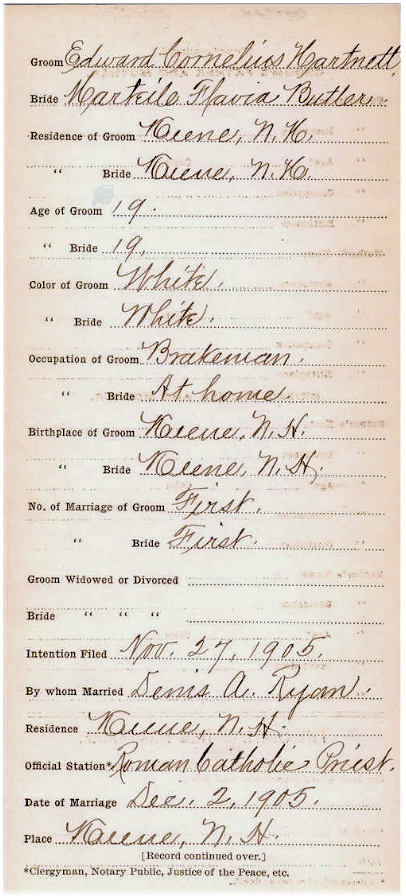 Groom Edward Cornelius Hartnett
Bride Markilo Flavia Butler.
Residence of Groom Keene, N.H.
" Bride Keene, N.H.
Age of Groom 19.
" Bride 19,
Color of Groom White.
" Bride White.
Occupation of Groom Brakeman.
" Bride At home.
Birthplace of Groom Keene, N.H.
" Bride Keene, N.H.
No. of Marriage of Groom First.
" Bride First.
Groom Widowed or Divorced
Bride " " "
Intention Filed Nov. 27, 1905.
By whom Married Denis A. Ryan.
Residence Keene, N.H.
Official Station* Roman Catholic Priest.
Date of Marriage Dec. 2, 1905.
Place Keene, N.H.
[Record continued over.]
*Clergyman, Notary Public, Justice of the Peace, etc.